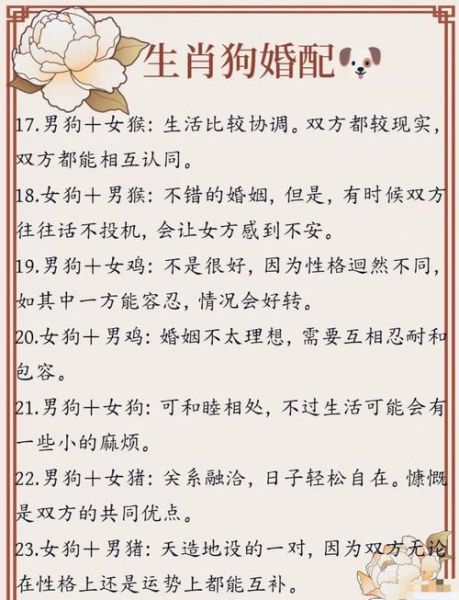 生肖狗婚配
17.男狗＋女猴：生活比较协调。双方都较现实，
双方都能相互认同。
18.女狗＋男猴：不错的婚姻，但是，有时候双方
往往话不投机，会让女方感到不安。
19.男狗＋女鸡：不是很好，因为性格迥然不同，
如其中一方能容忍，情况会好转。
20.女狗＋男鸡：婚姻不太理想，需要互相忍耐和
包容。
21.男狗＋女狗：可和睦相处，不过生活可能会有
一些小的麻烦。
22.男狗＋女猪：关系融洽，日子轻松自在。慷慨
是双方的共同优点。
23.女狗＋男猪：天造地设的一对，因为双方无论
在性格上还是运势上都能互补。